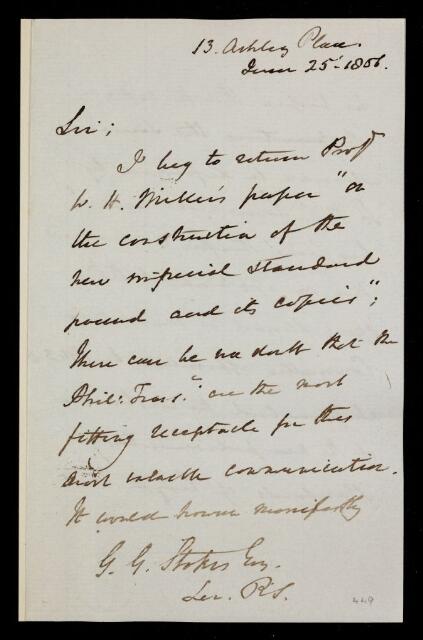 13. Ashley Place.
June 25th 1856.
Sir;
I beg to return Profr
W. H. Miller's paper "on
the construction of the
new imperial standard
pound and its copies";
There can be no doubt that the
Phil: Trans. are the most
fitting receptacle for this
most valuable communication.
It would however manifestly
G. G. Stokes Esq.
Sec. R.S.
449